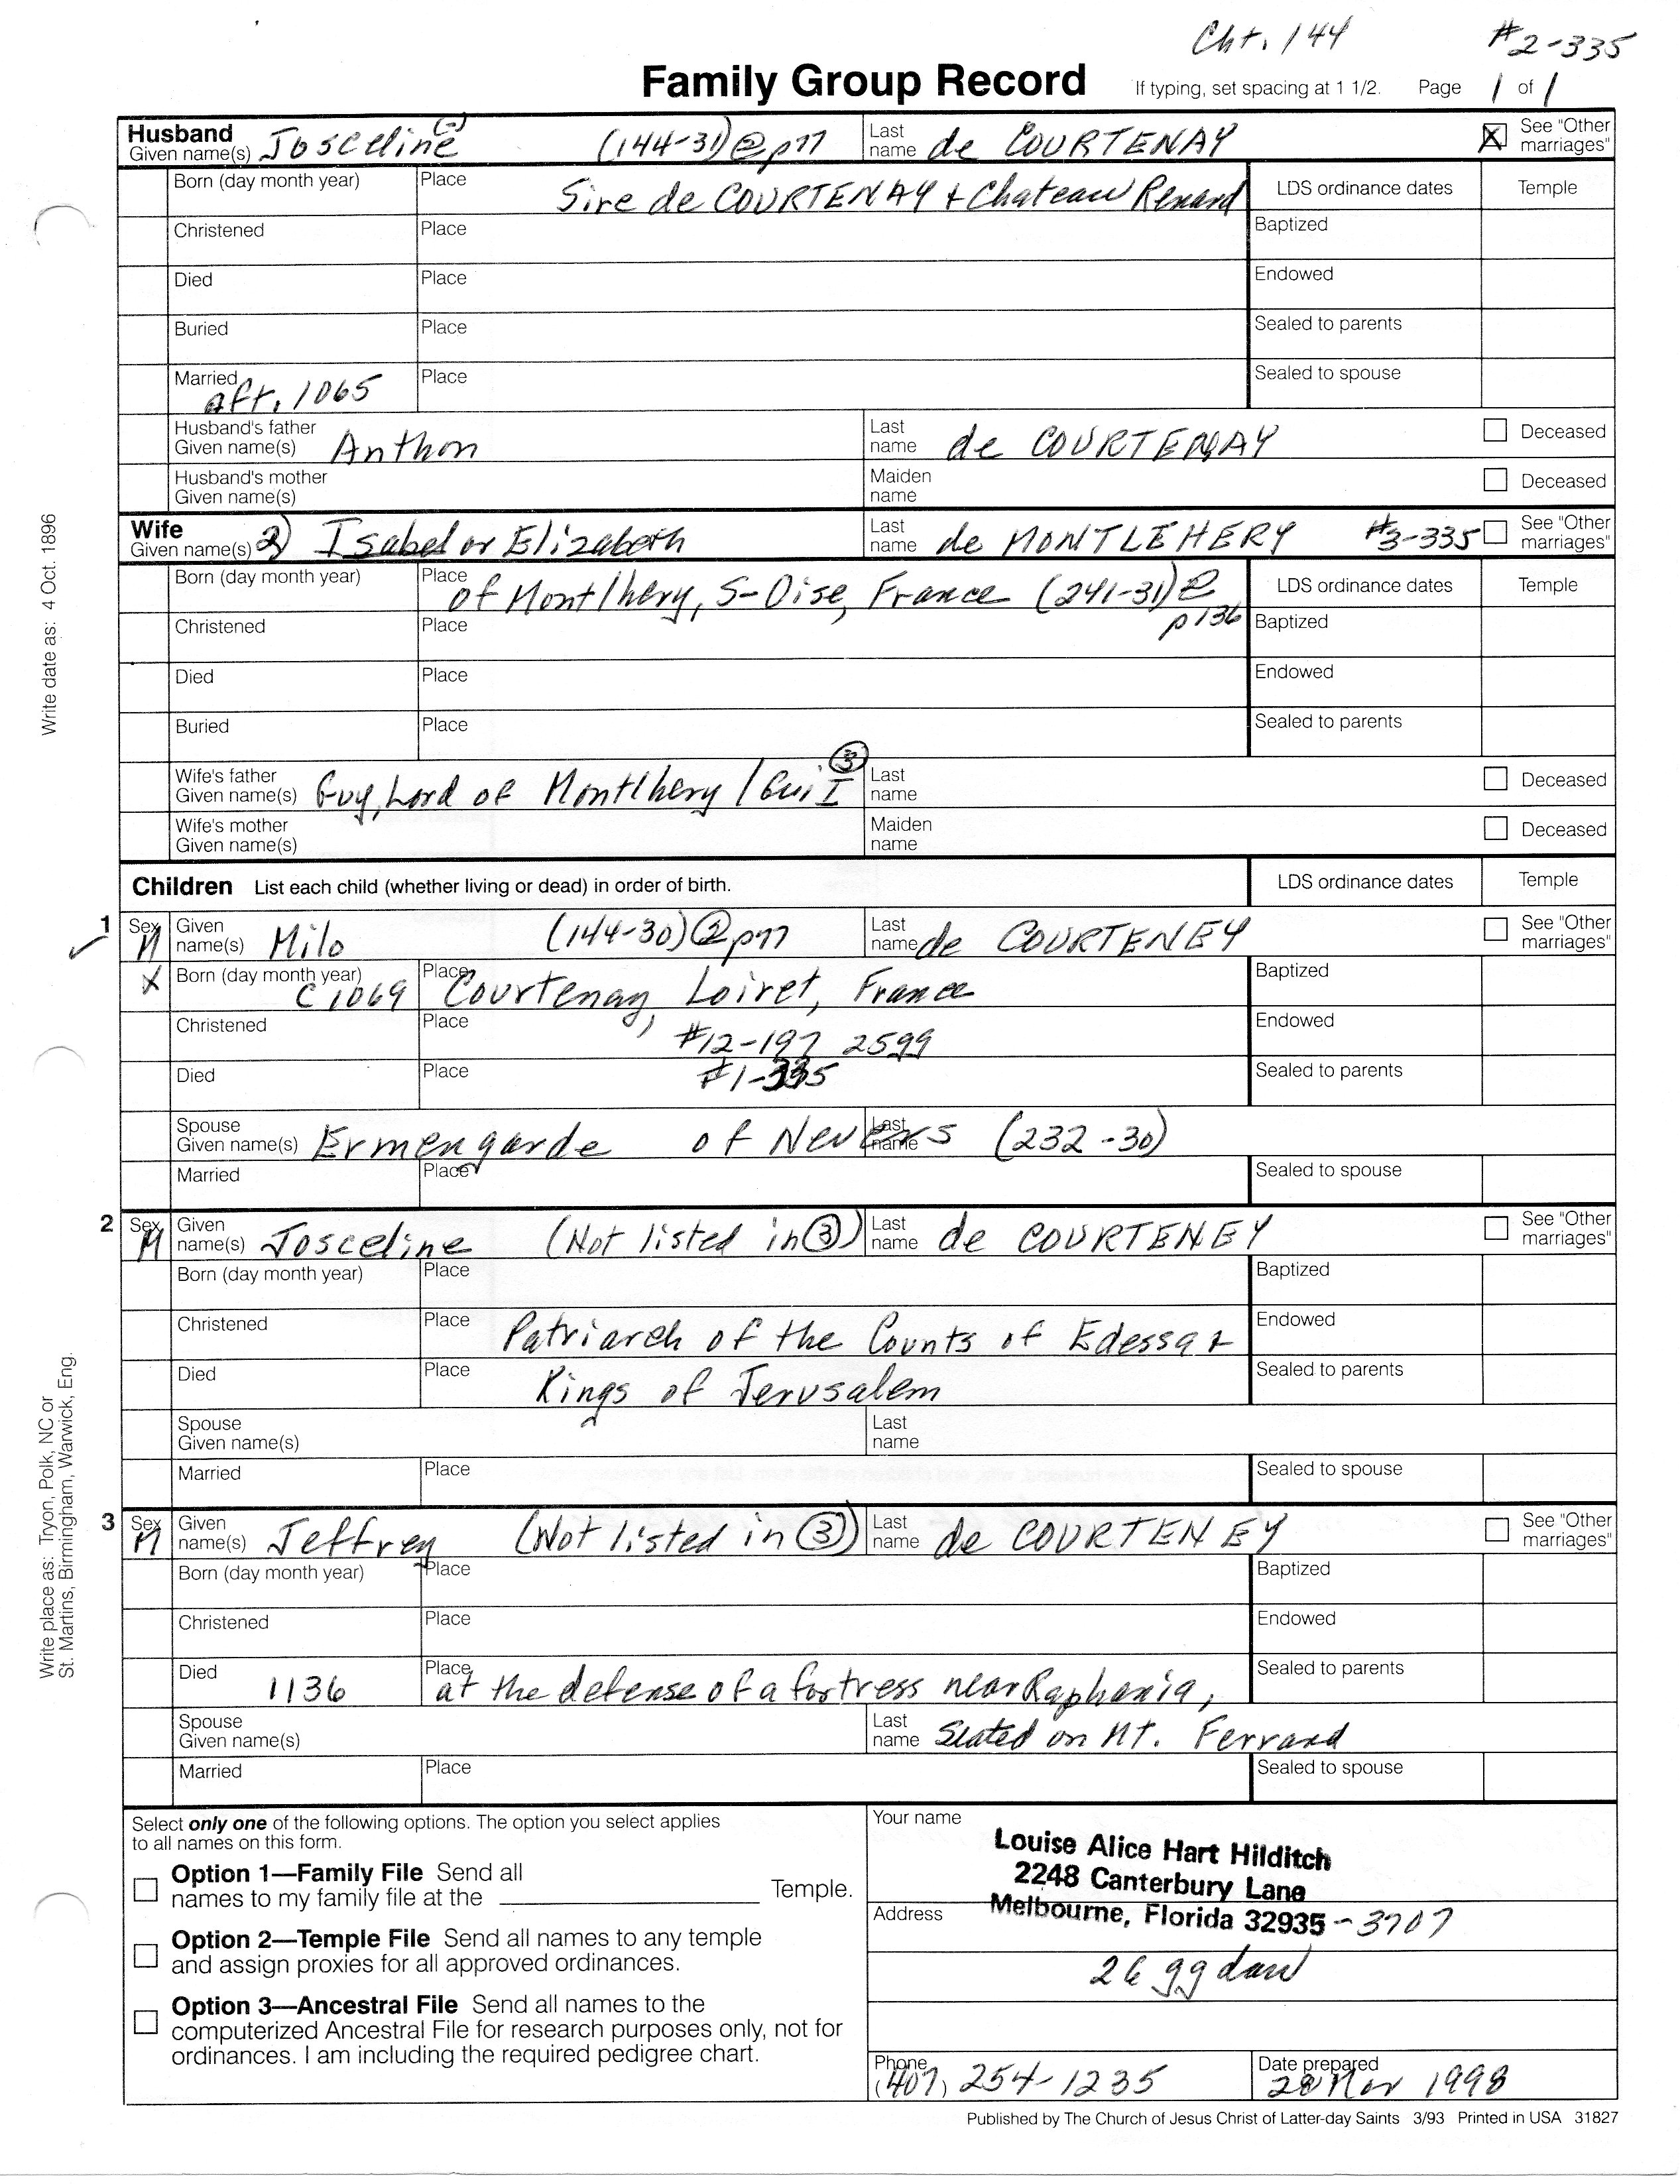 Cht. 144 #2-335
Family Group Record If typing, set spacing at 1 1/2. Page 1 of 1
Husband Given name(s) Josceline (144-31)@p77 Last name de COURTENAY See "Other marriages"
Born (day month year) Place Sire de COURTENAY + Chateau Renard LDS ordinance dates Temple
Christened Place Baptized
Died Place Endowed
Buried Place Sealed to parents
Married aft. 1065 Place Sealed to spouse
Husband's father Given name(s) Anthon Last name de COURTENAY Deceased
Husband's mother Given name(s) Maiden name Deceased
Wife Given name(s) 2) Isabel or Elizabeth Last name de MONTLEHERY #3-335 See "Other marriages"
Born (day month year) Place of Montlhery, S-Oise, France (241-31)@ LDS ordinance dates Temple
Christened Place p136 Baptized
Died Place Endowed
Buried Place Sealed to parents
Wife's father Given name(s) Guy, Lord of Montlhery / Gui I ③ Last name Deceased
Wife's mother Given name(s) Maiden name Deceased
Children List each child (whether living or dead) in order of birth. LDS ordinance dates Temple
1 Sex M Given name(s) Milo (144-30)②p77 Last name de COURTENEY See "Other marriages"
X Born (day month year) C 1069 Place Courtenay, Loiret, France Baptized
Christened Place #12-197 2599 Endowed
Died Place #1-335 Sealed to parents
Spouse Given name(s) Ermengarde of Nevers Last name (232-30)
Married Place Sealed to spouse
2 Sex M Given name(s) Josceline (Not listed in ③) Last name de COURTENEY See "Other marriages"
Born (day month year) Place Baptized
Christened Place Patriarch of the Counts of Edessa & Endowed
Died Place Kings of Jerusalem Sealed to parents
Spouse Given name(s) Last name
Married Place Sealed to spouse
3 Sex M Given name(s) Jeffrey (Not listed in ③) Last name de COURTENEY See "Other marriages"
Born (day month year) Place Baptized
Christened Place Endowed
Died 1136 Place at the defense of a fortress near Raphania, Sealed to parents
Spouse Given name(s) Last name Seated on Mt. Ferrand
Married Place Sealed to spouse
Select only one of the following options. The option you select applies
to all names on this form.
Option 1—Family File Send all
names to my family file at the Temple.
Option 2—Temple File Send all names to any temple
and assign proxies for all approved ordinances.
Option 3—Ancestral File Send all names to the
computerized Ancestral File for research purposes only, not for
ordinances. I am including the required pedigree chart.
Your name
Louise Alice Hart Hilditch
2248 Canterbury Lane
Address Melbourne, Florida 32935-3707
26 gg dau
Phone (407) 254-1235 Date prepared 28 Mar 1998
Published by The Church of Jesus Christ of Latter-day Saints 3/93 Printed in USA 31827
Write date as: 4 Oct. 1896
Write place as: Tryon, Polk, NC or
St. Martins, Birmingham, Warwick, Eng.